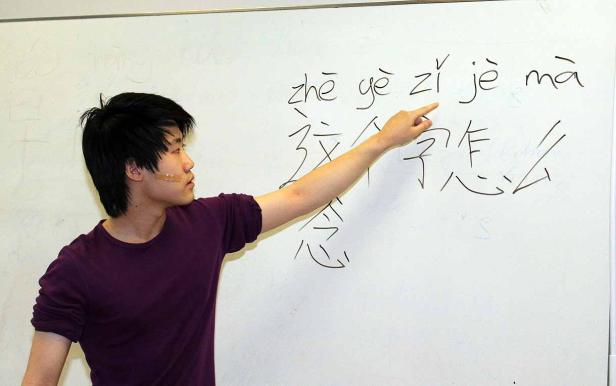 zhē gè zǐ jè mà
这个字怎么
念